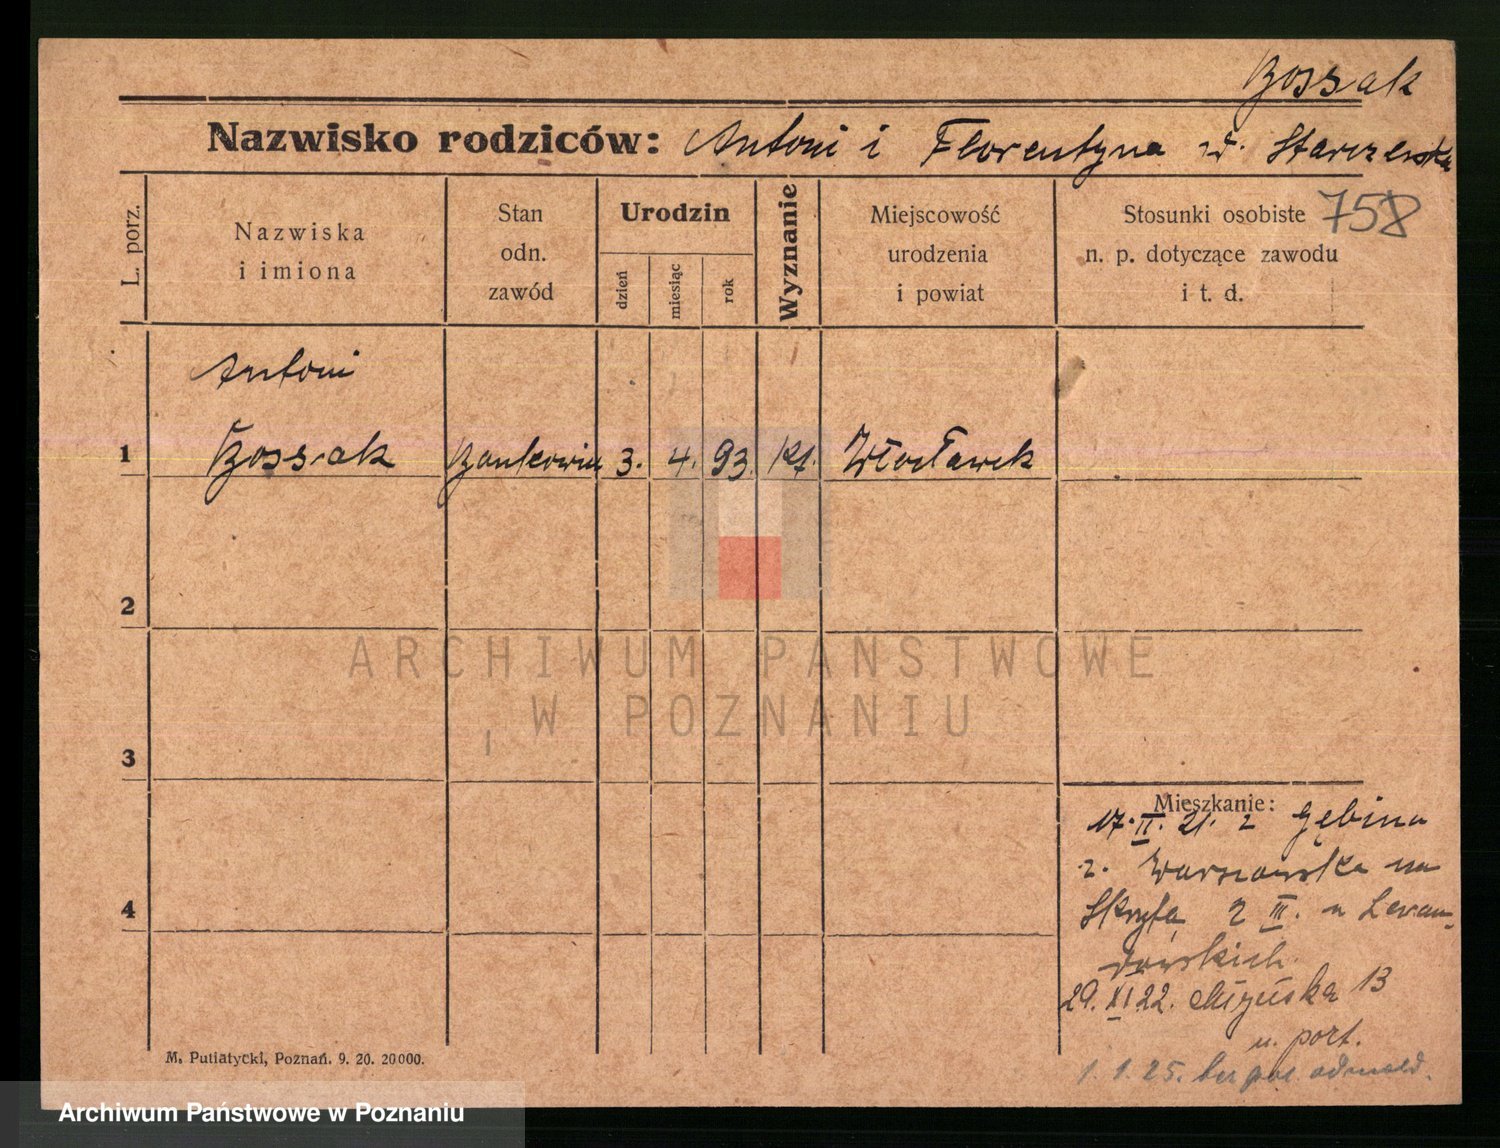 Bossak
Nazwisko rodziców: Antoni i Florentyna d. Starczewska
758
L. porz.
Nazwiska
i imiona
Stan
odn.
zawód
Urodzin
dzień
miesiąc
rok
Wyznanie
Miejscowość
urodzenia
i powiat
Stosunki osobiste
n. p. dotyczące zawodu
i t. d.
Antoni
1 Bossak 3. 4. 93 kt. Włocławek
2
3
4
ARCHIWUM PAŃSTWOWE
W POZNANIU
Mieszkanie:
17. II. 21. z Gębina
z. Warszawska na
2 III. u Lewan-
dowskich.
29. XI 22. 13
u. port.
1. 1. 25.
M. Putiatycki, Poznań. 9. 20. 20000.
Archiwum Państwowe w Poznaniu